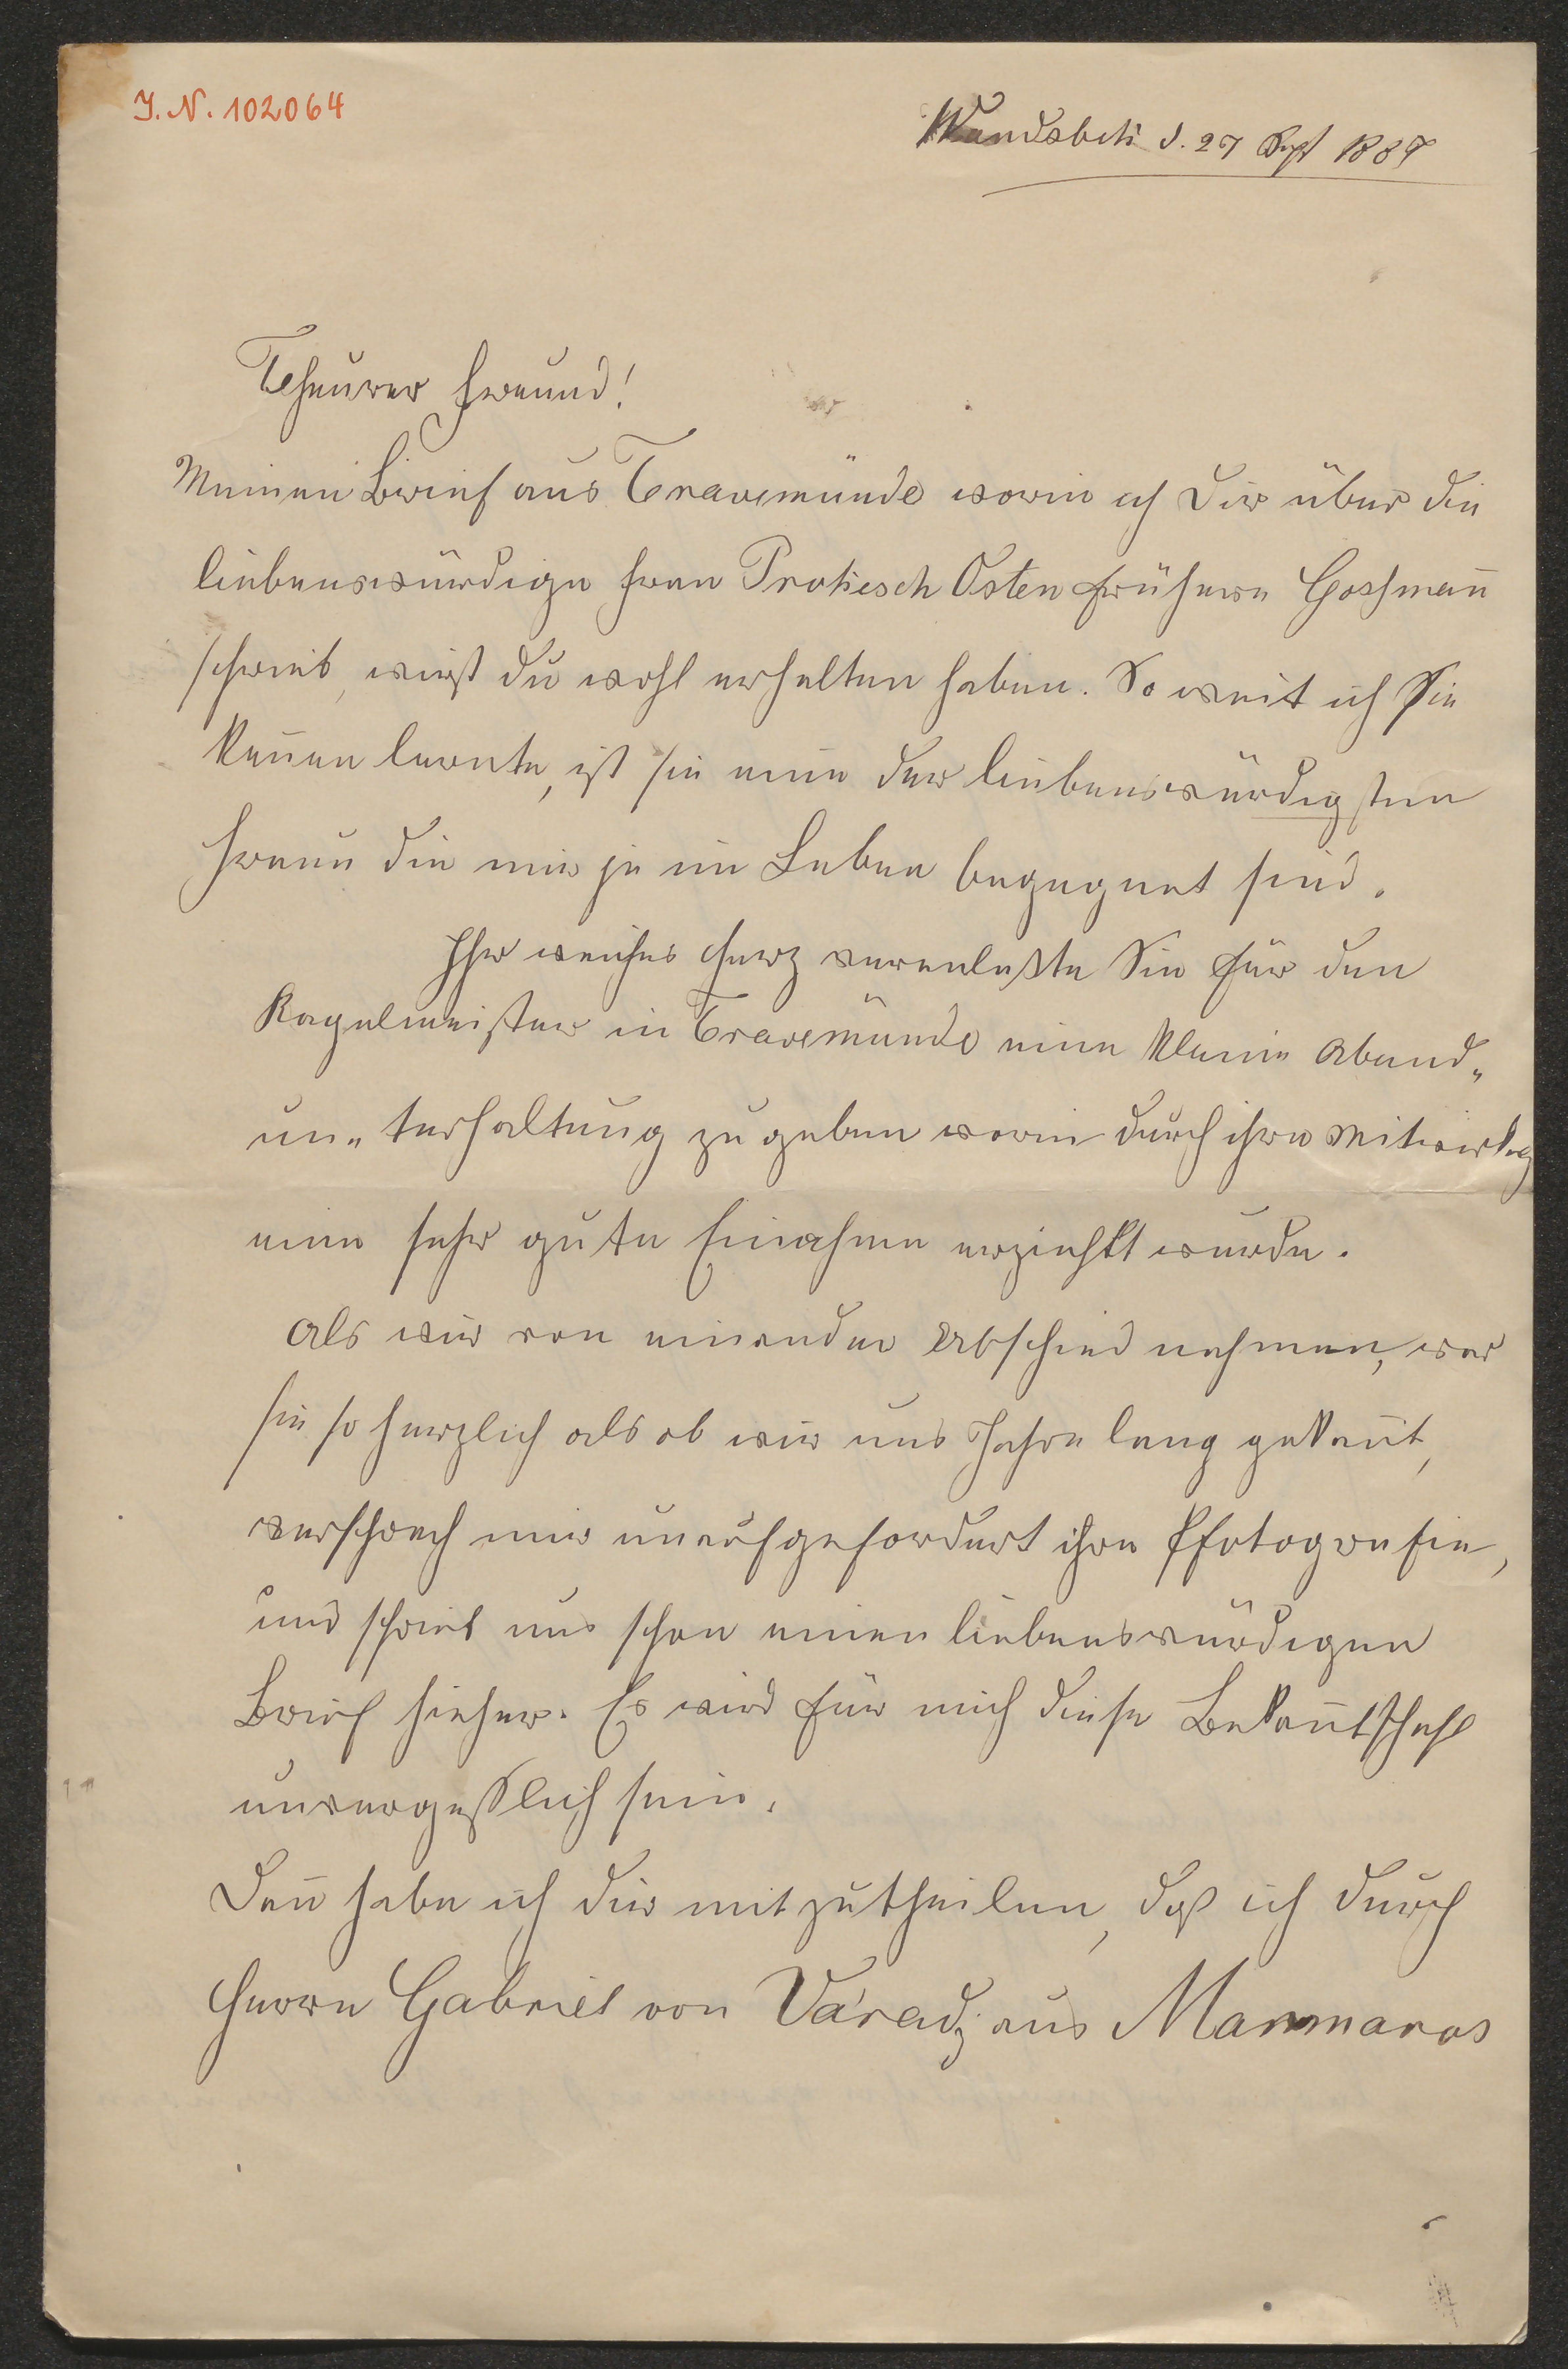 J. N. 102064
Wandsbek d. 27 Sept 1887
Theurer Freund!
Meinen Brief aus Travemünde worin ich Dir über die
liebenswürdige Frau Prokesch Osten frühere Goßmañ
schrieb, wirst du wohl erhalten haben. So weit ich Sie
keñen lernte, ist sie eine der liebenswürdigsten
Frauen die mir je im Leben begegnet sind.
Ihr weiches Herz veranlaßte Sie für den
Kapelmeister in Travemünde eine kleine Abend„
un„terhaltung zu geben worin durch ihre Mitwirkg
eine sehr gute Einahme erziehlt wurde.
Als wir von einander Abschied nahmen, war
sie so herzlich als ob wir uns Jahre lang gekañt,
versprach mir unaufgefordert ihre Pfotografie,
und schrieb uns schon einen liebenswürdigen
Brief hieher. Es wird für mich diese Bekañtschaft
unvergeßlich sein.
Dañ habe ich dir mitzutheilen, daß ich durch
Herrn Gabriel von Várady aus Marmaros